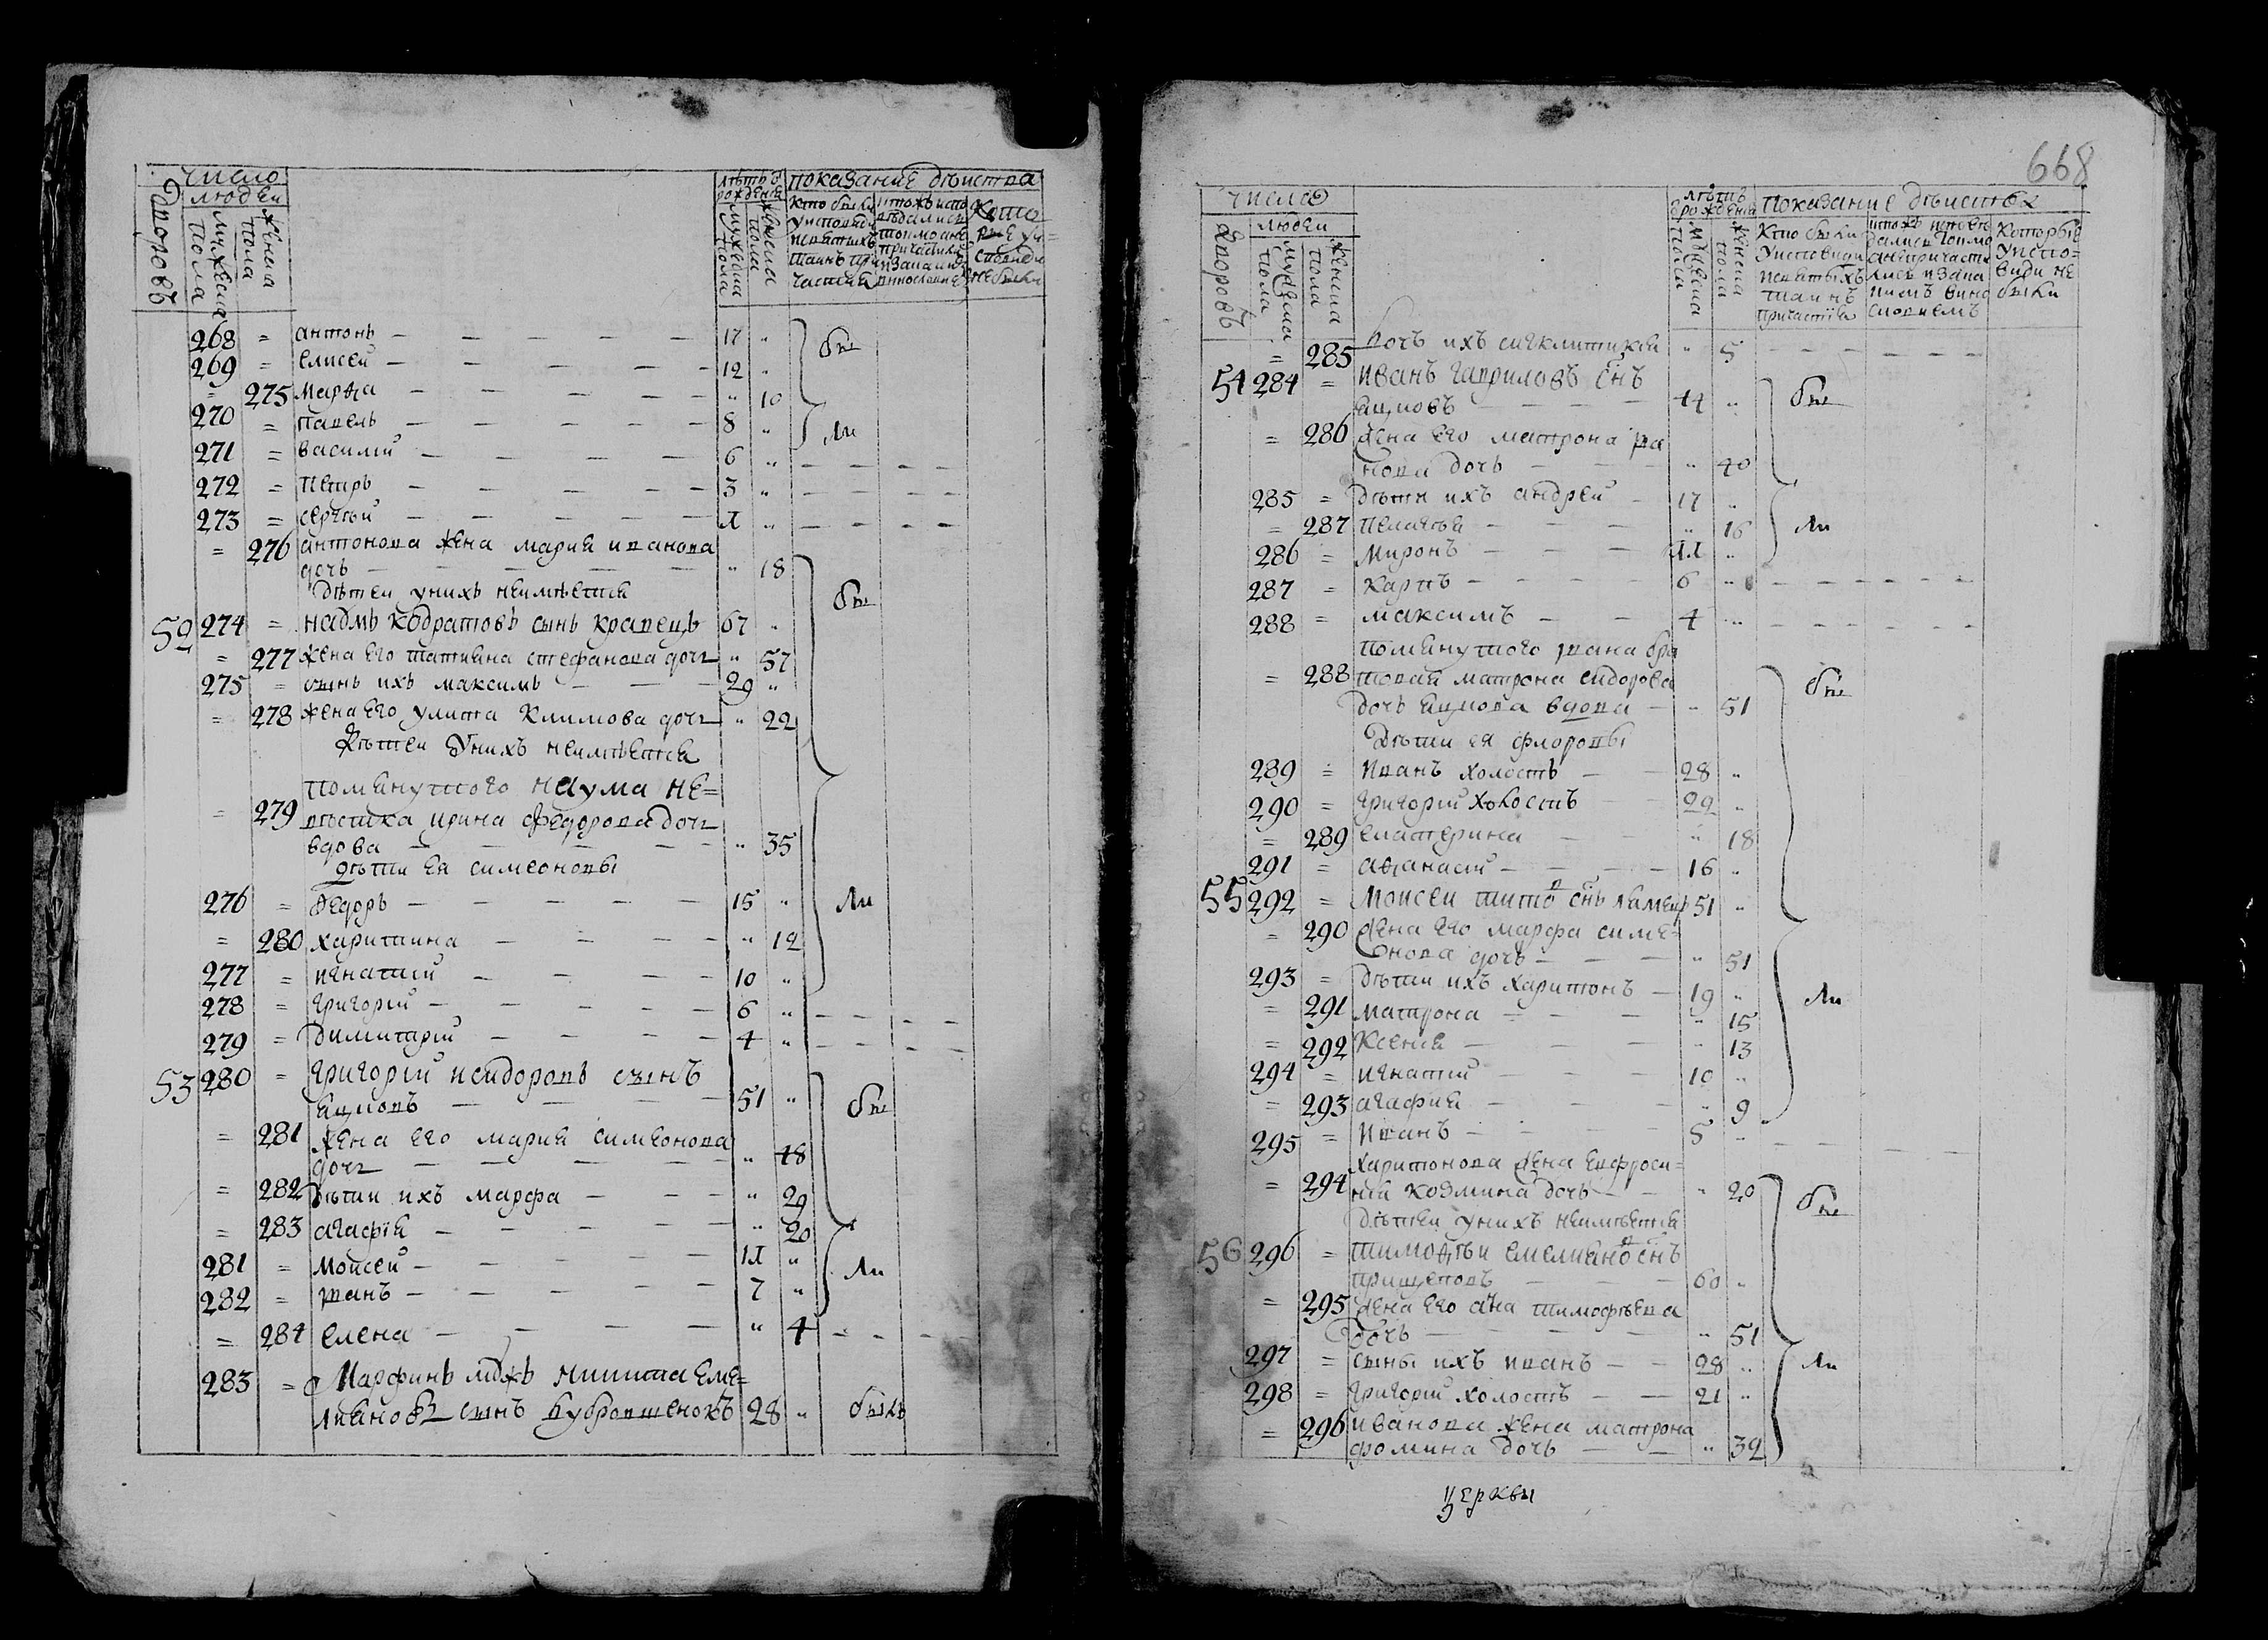 число
дворовъ
людей
мужеска пола
женска пола
лѣтъ от рожденiя
мужеска пола
женска пола
показание дѣиства
Кто были у исповѣди и святыхъ таинъ причастия
Кото
рые у и
сповѣди
не были
268 = антонъ — — — — — 17 „ бы
269 = елисей — — — — — 12 „
= 275 марѳа — — — — — „ 10
270 = павелъ — — — — — 8 „ ли
271 = василий — — — — 6 „ — — — —
272 = петръ — — — — — 3 „ — — — —
273 = сергѣй — — — — — 1 „ — — — —
= 276 антонова жена мария иванова
дочь — — — — — „ 18
дѣтей у нихъ неимѣется бы
52 274 = наумъ кодратовъ сынъ кравецъ 67 „
= 277 жена его татиана стефанова дочь „ 57
275 = сынъ ихъ максимъ — — 29 „
= 278 жена его улита климова дочь „ 22
дѣтей у нихъ неимѣется
помянутого наума не=
= 279 вѣстка ирина федорова дочь
вдова — — — — — „ 35
дѣти ея симеоновы
276 = ѳедоръ — — — — 15 „ ли
= 280 харитина — — — — „ 12
277 = игнатий — — — — 10 „
278 = григорий — — — — 6 „ — — — —
279 = димитрий — — — — 4 „ — — — —
53 280 = григорий исидоровъ сынъ
яцковъ — — — — 51 „ бы
= 281 жена его мария симеонова
дочь — — — — — „ 48
= 282 дѣти ихъ марфа — — — „ 29
= 283 агафия — — — — — „ 20
281 = моисей — — — — 11 „ ли
282 = иванъ — — — — 7 „
= 284 елена — — — — „ 4 — — —
283 = Марфинъ мужъ никита еме=
лианов сынъ дубровшенокъ 28 „ былъ
668
число
дворовъ
людей
мужеска пола
женска пола
лѣтъ
от рожденiя
мужеска пола
женска пола
показание дѣиства
Кто были
у исповѣди
и святыхъ
таинъ
причастия
Которые
у испо=
вѣди не
были
= 285 дочь ихъ сигклитикия „ 5 — — — — — —
54 284 = иванъ гавриловъ снъ
яцковъ — — — — 44 „ бы
= 286 жена его матрона ива
нова дочь — — — „ 40
285 = дѣти ихъ андрей — 17 „
= 287 пелагия — — — — „ 16 ли
286 = миронъ — — — 11 „
287 = карпъ — — — — 6 „ — — — — — —
288 = максимъ — — 4 „ — — — — — —
помянутого ивана бра
= 288 товая матрона сидорова бы
дочь яцкова вдова — „ 51
дѣти ея флоровы
289 = иванъ холостъ — — 28 „
290 = григорий холостъ — — 22 „
= 289 екатерина — — — „ 18
291 = аѳанасий — — — — 16 „
55 292 = моисей титовъ снъ 51 „
= 290 жена его марфа симе=
онова дочь — — — „ 51
293 = дѣти ихъ харитонъ — 19 „ ли
= 291 матрона — — — — „ 15
= 292 ксения — — — — „ 13
294 = игнатий — — — 10 „
= 293 агафия — — — — „ 9
295 = иванъ — — — — 5 „ — — — —
харитонова жена евфроси=
= 294 ния козмина дочь — — „ 20 бы
дѣтей у нихъ неимѣется
56 296 = тимоѳѣи емелиановъ снъ
прищеповъ — — — 60 „
= 295 жена его анна тимофѣева
дочь — — — — „ 51
297 = сыны ихъ иванъ — — 28 „ ли
298 = григорий холостъ — — 21 „
= 296 иванова жена матрона
фомина дочь — — „ 32
церквы